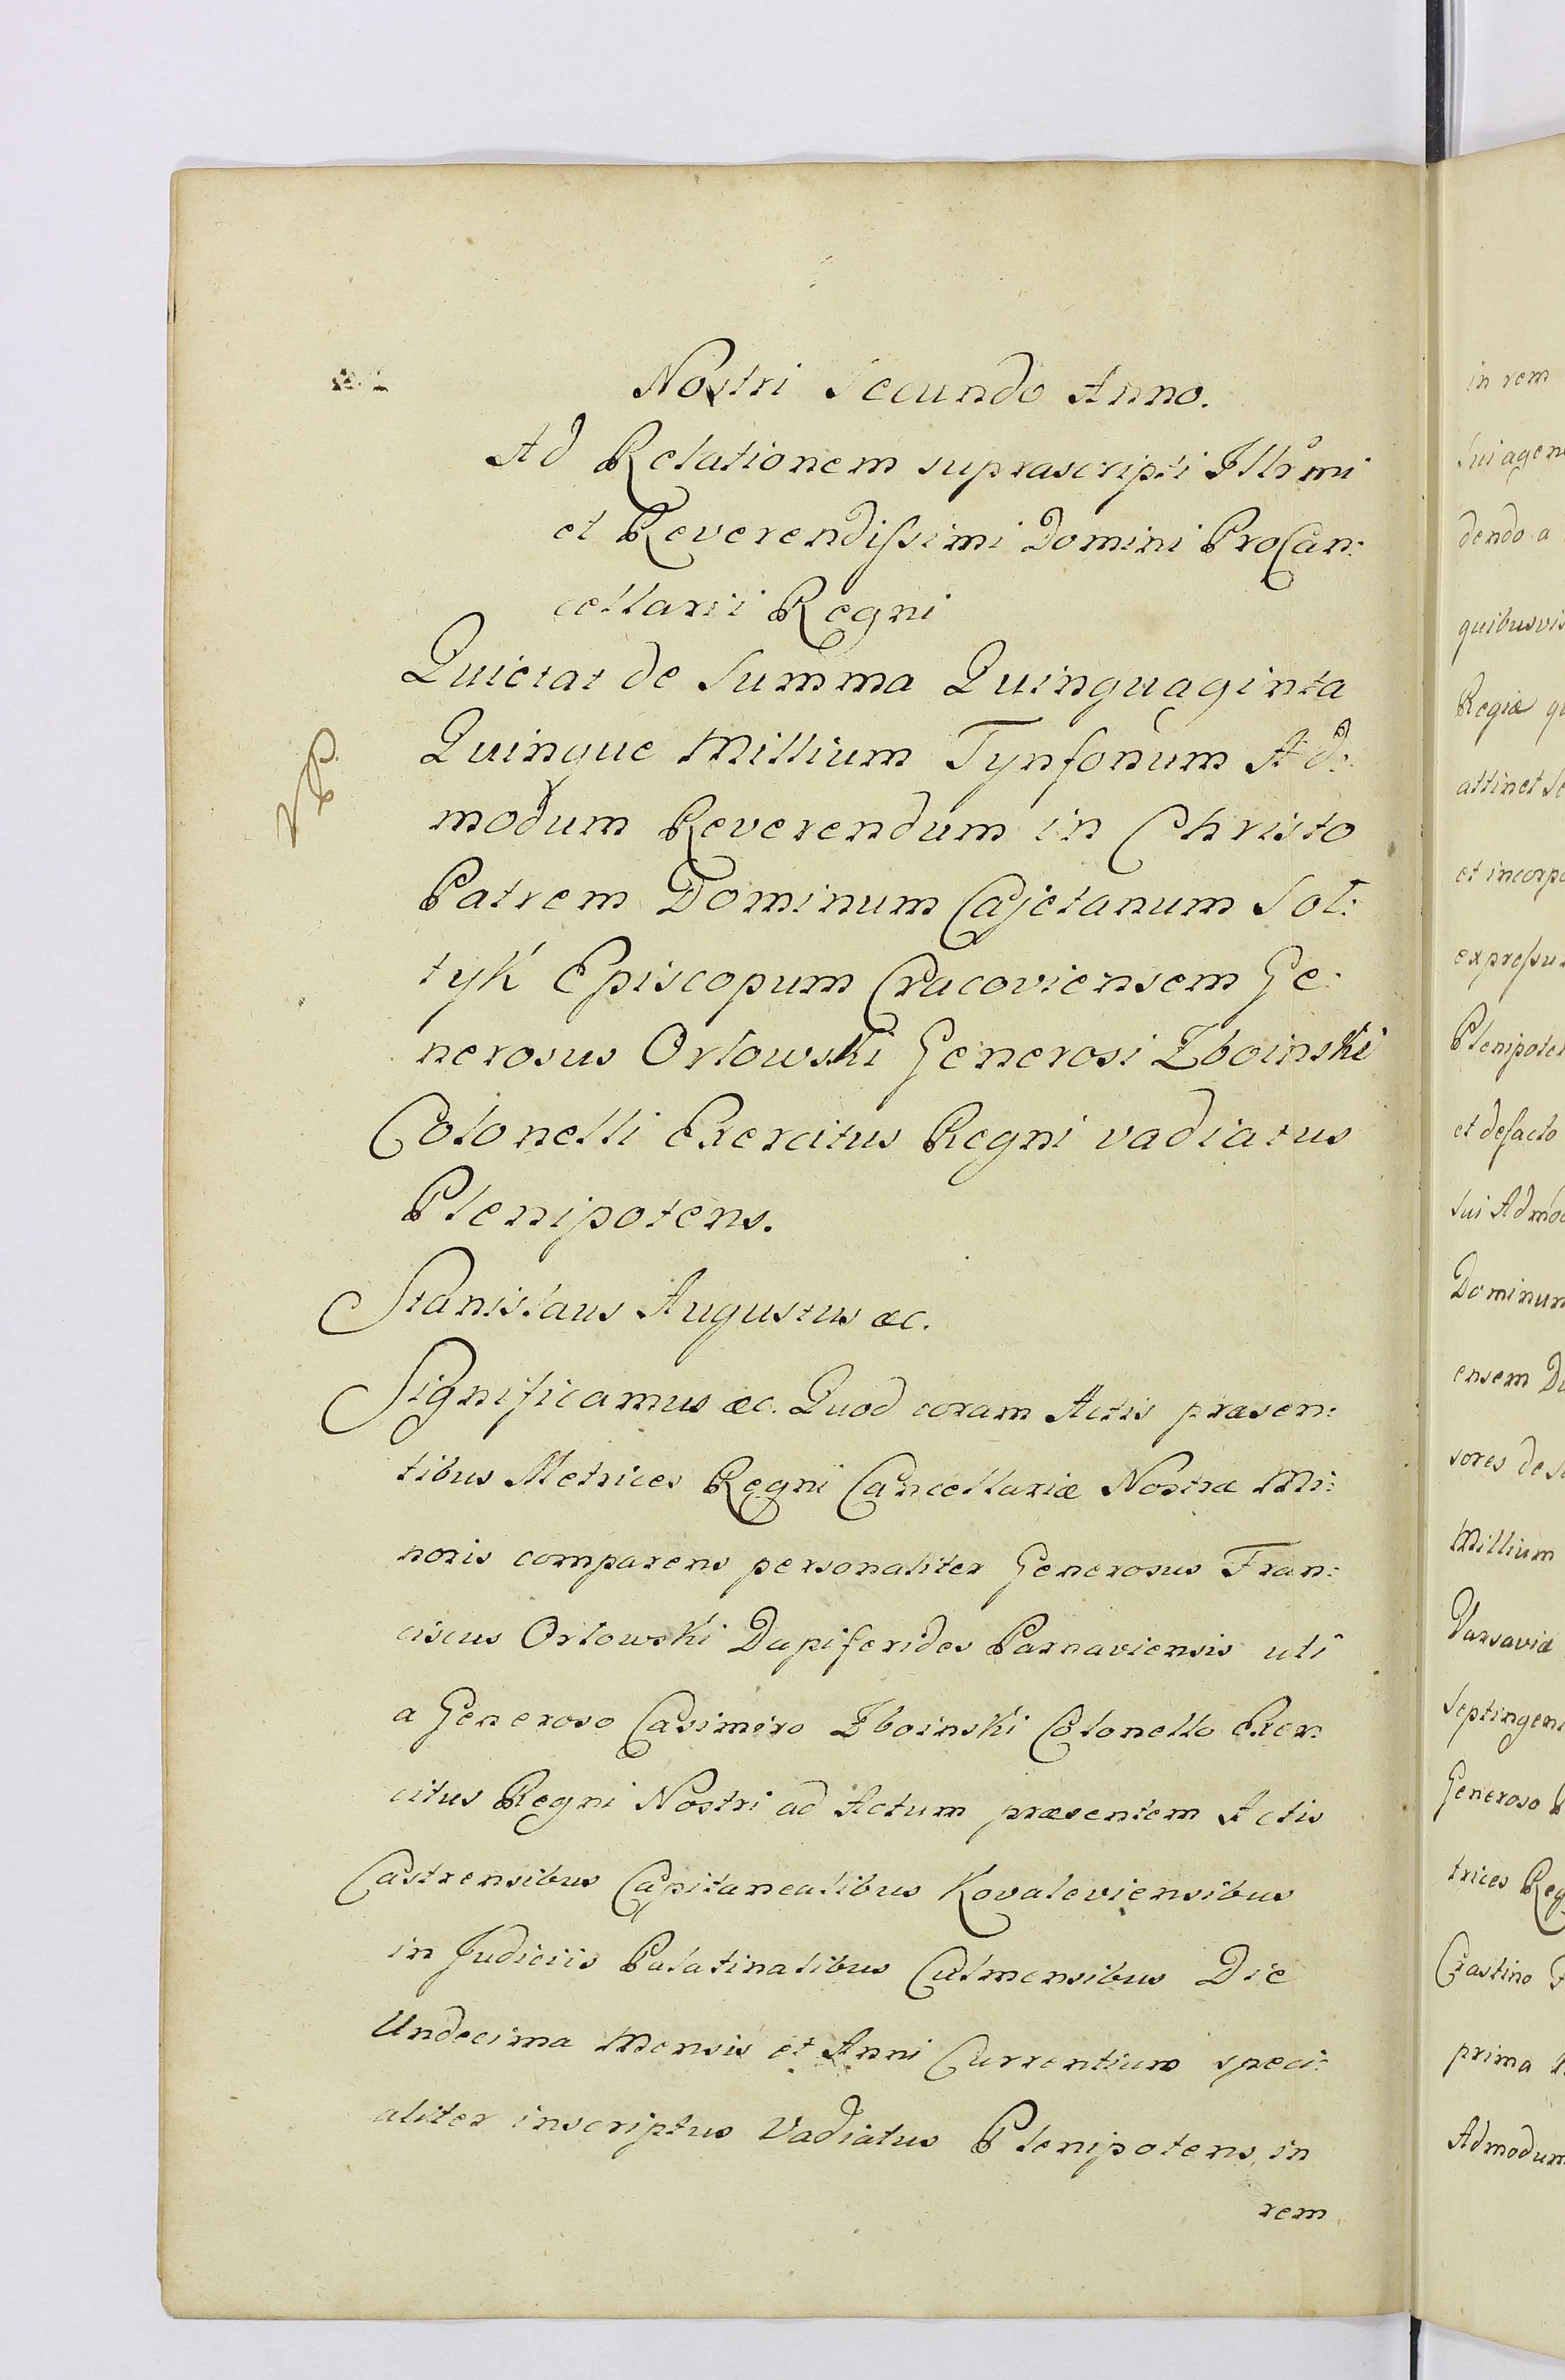 Nostri Secundo Anno.
Ad Relationem suprascripti Illrmi
et Reverendissimi Domini ProCan:
cellarii Regni
Quietat de Summa Quinquaginta
Quinque Millium Tynfonum Ad:
modum Reverendum in Christo
Patrem Dominum Cajetanum Sol:
tyk Episcopum Cracoviensem Ge:
nerosus Orlowski Generosi Zboinski
Colonelli Exercitus Regni vadiatus
Plenipotens.
Stanislaus Augustus &c.
Significamus &c. Quod coram Actis præsen:
tibus Metrices Regni Cancellariæ Nostræ Mi:
noris comparens personaliter Generosus Fran:
ciscus Orlowski Dapiferides Parnaviensis uti
a Generoso Casimiro Zboinski Colonello Exer:
citus Regni Nostri ad Actum præsentem Actis
Castrensibus Capitanealibus Kovaleviensibus
in Judiciis Palatinalibus Culmensibus Die
Undecima Mensis et Anni Currentium speci:
aliter inscriptus Vadiatus Plenipotens, in
rem
in rem
Sui agen
dendo a
quibusvis
Regiæ
attinet
et incorpo
Plenipoten
et defacto
sui Admod
Dominum
ensem
sores de
Millium
Varsaviæ
Septingen
Generoso
trices Reg
Crastino
prima
Admodum